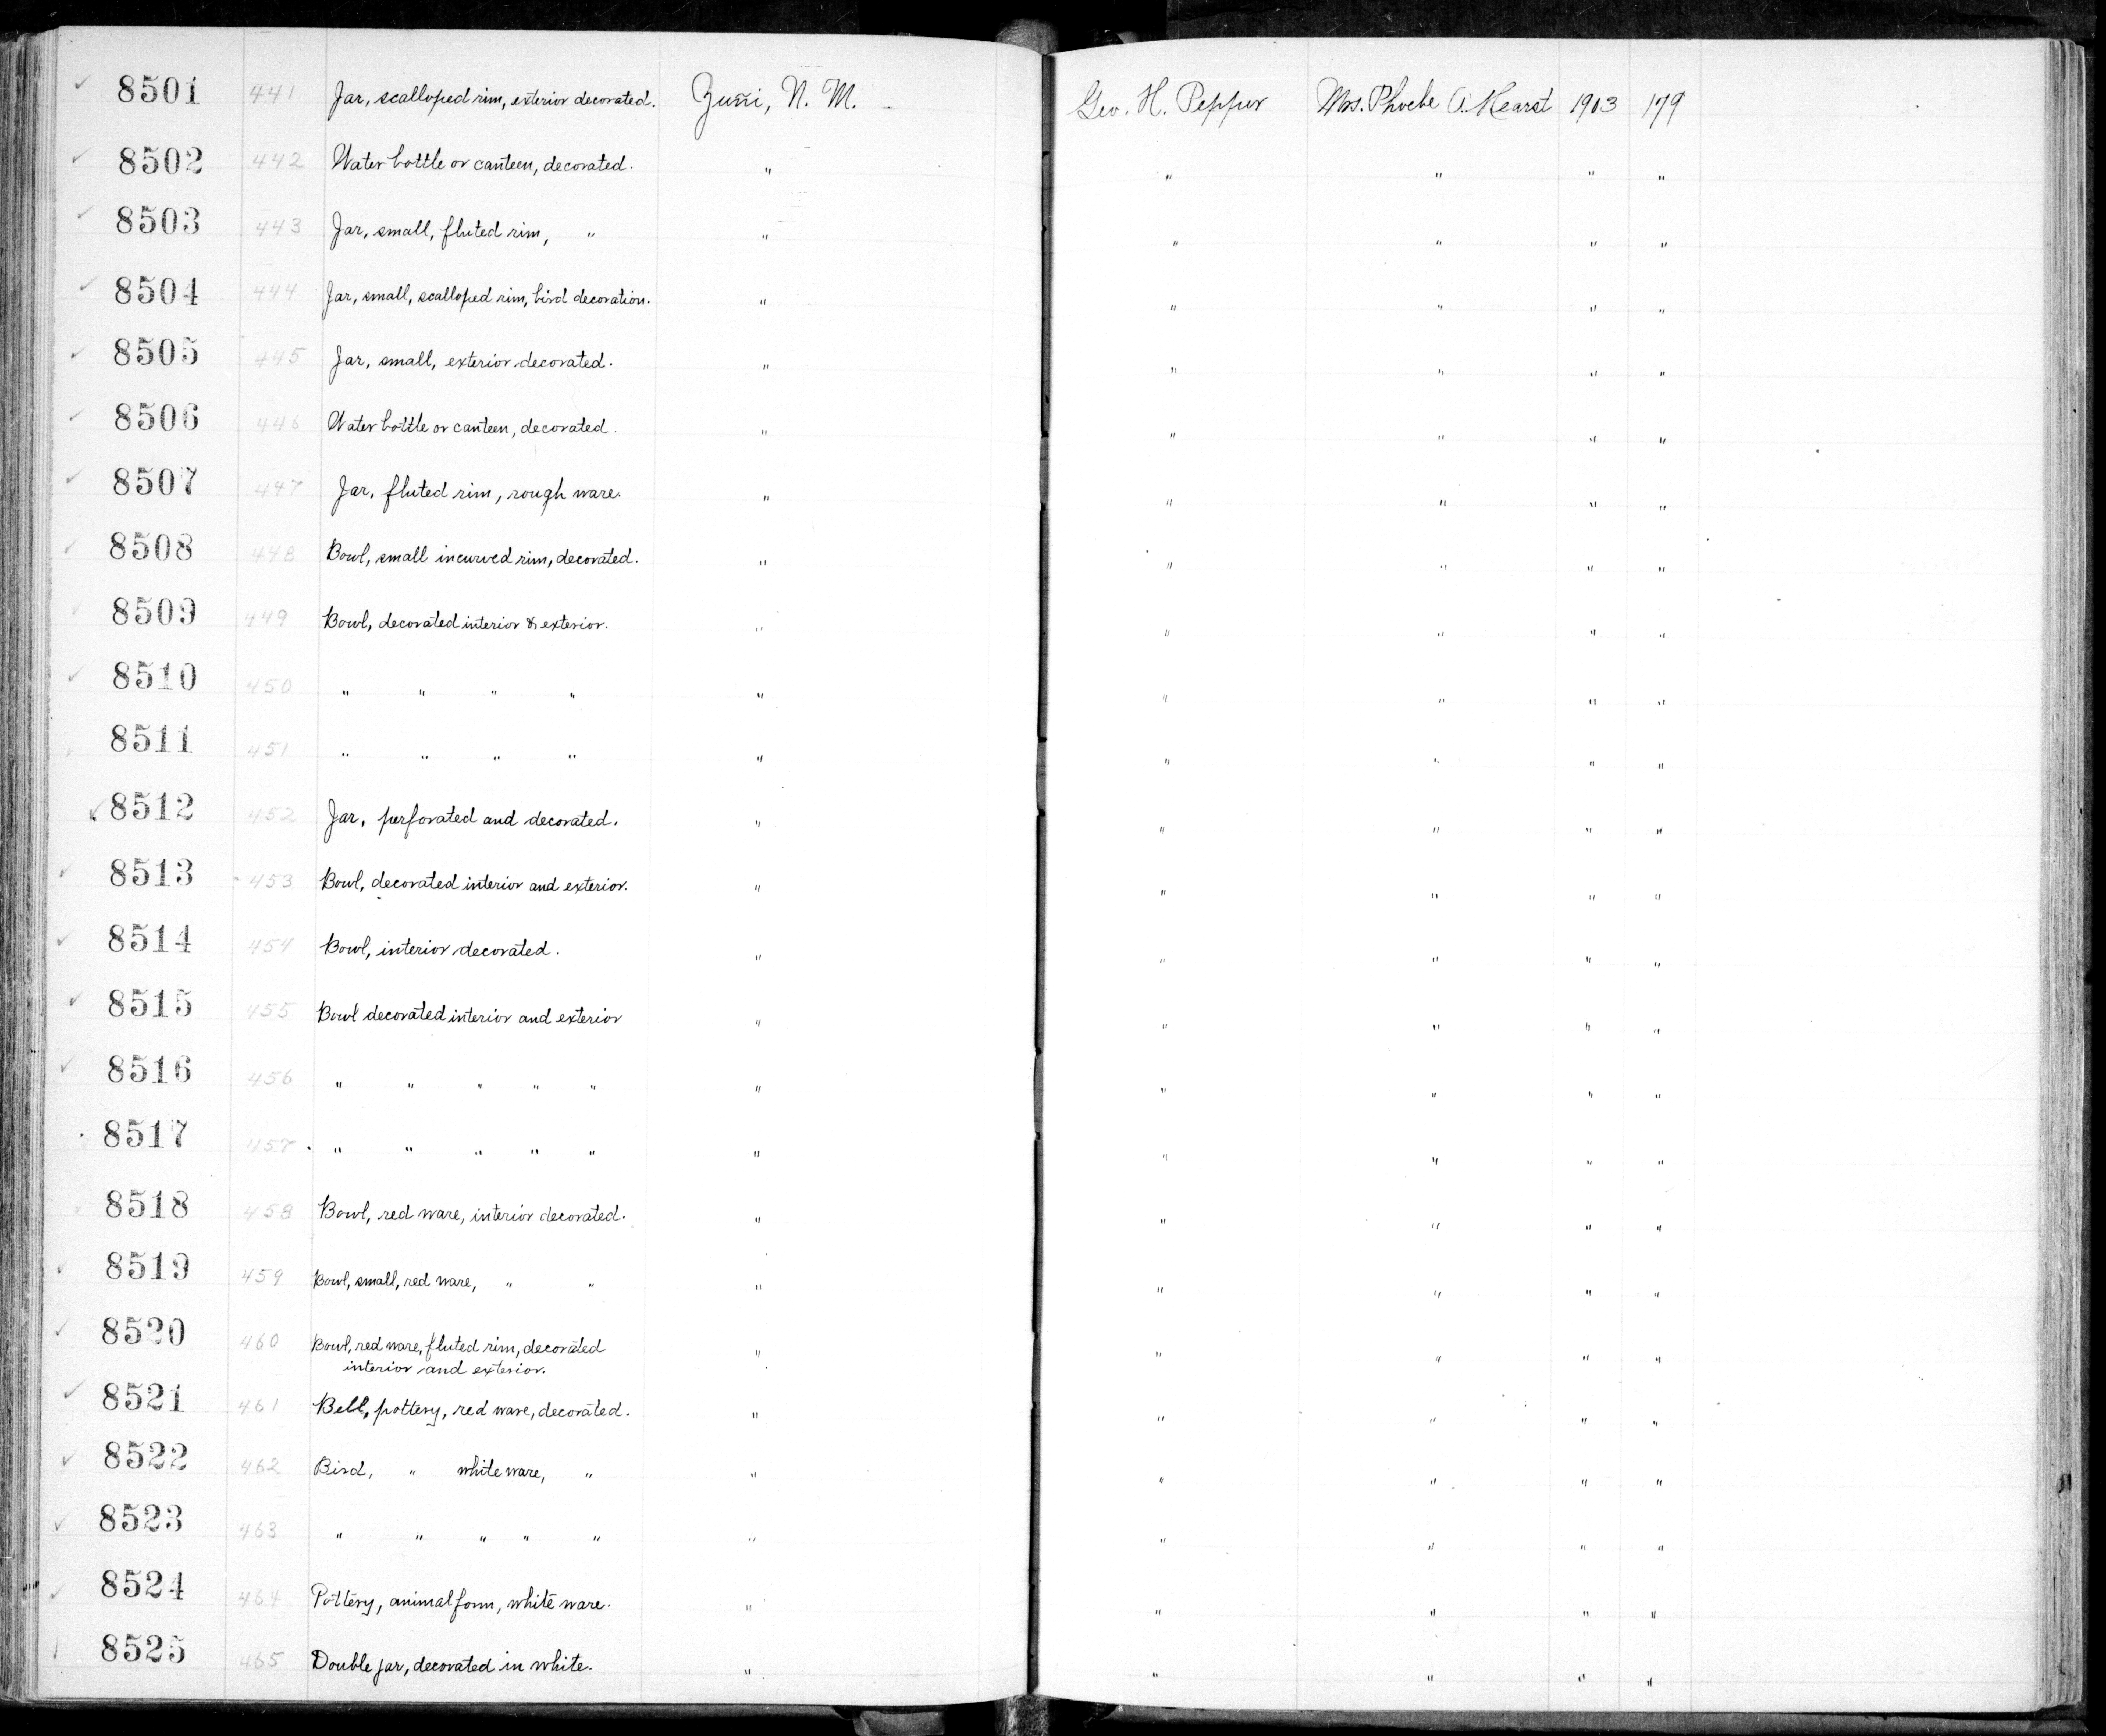 8501 441 Jar, scalloped rim, exterior decorated. Zuñi, N. M. Geo. H. Pepper Mrs. Phoebe A. Hearst 1903 179
8502 442 Water bottle or canteen, decorated. " " " " "
8503 443 Jar, small, fluted rim, " " " " " "
8504 444 Jar, small, scalloped rim, bird decoration. " " " " "
8505 445 Jar, small, exterior decorated. " " " " "
8506 446 Water bottle or canteen, decorated. " " " " "
8507 447 Jar, fluted rim, rough ware. " " " " "
8508 448 Bowl, small incurved rim, decorated. " " " " "
8509 449 Bowl, decorated interior & exterior. " " " " "
8510 450 " " " " " " " " "
8511 451 " " " " " " " " "
8512 452 Jar, perforated and decorated. " " " " "
8513 453 Bowl, decorated interior and exterior. " " " " "
8514 454 Bowl, interior decorated. " " " " "
8515 455 Bowl decorated interior and exterior " " " " "
8516 456 " " " " " " " " " "
8517 457 " " " " " " " " " "
8518 458 Bowl, red ware, interior decorated. " " " " "
8519 459 Bowl, small, red ware, " " " " " " "
8520 460 Bowl, red ware, fluted rim, decorated " " " " "
interior and exterior.
8521 461 Bell, pottery, red ware, decorated. " " " " "
8522 462 Bird, " white ware, " " " " " "
8523 463 " " " " " " " " " "
8524 464 Pottery, animal form, white ware. " " " " "
8525 465 Double jar, decorated in white. " " " " "